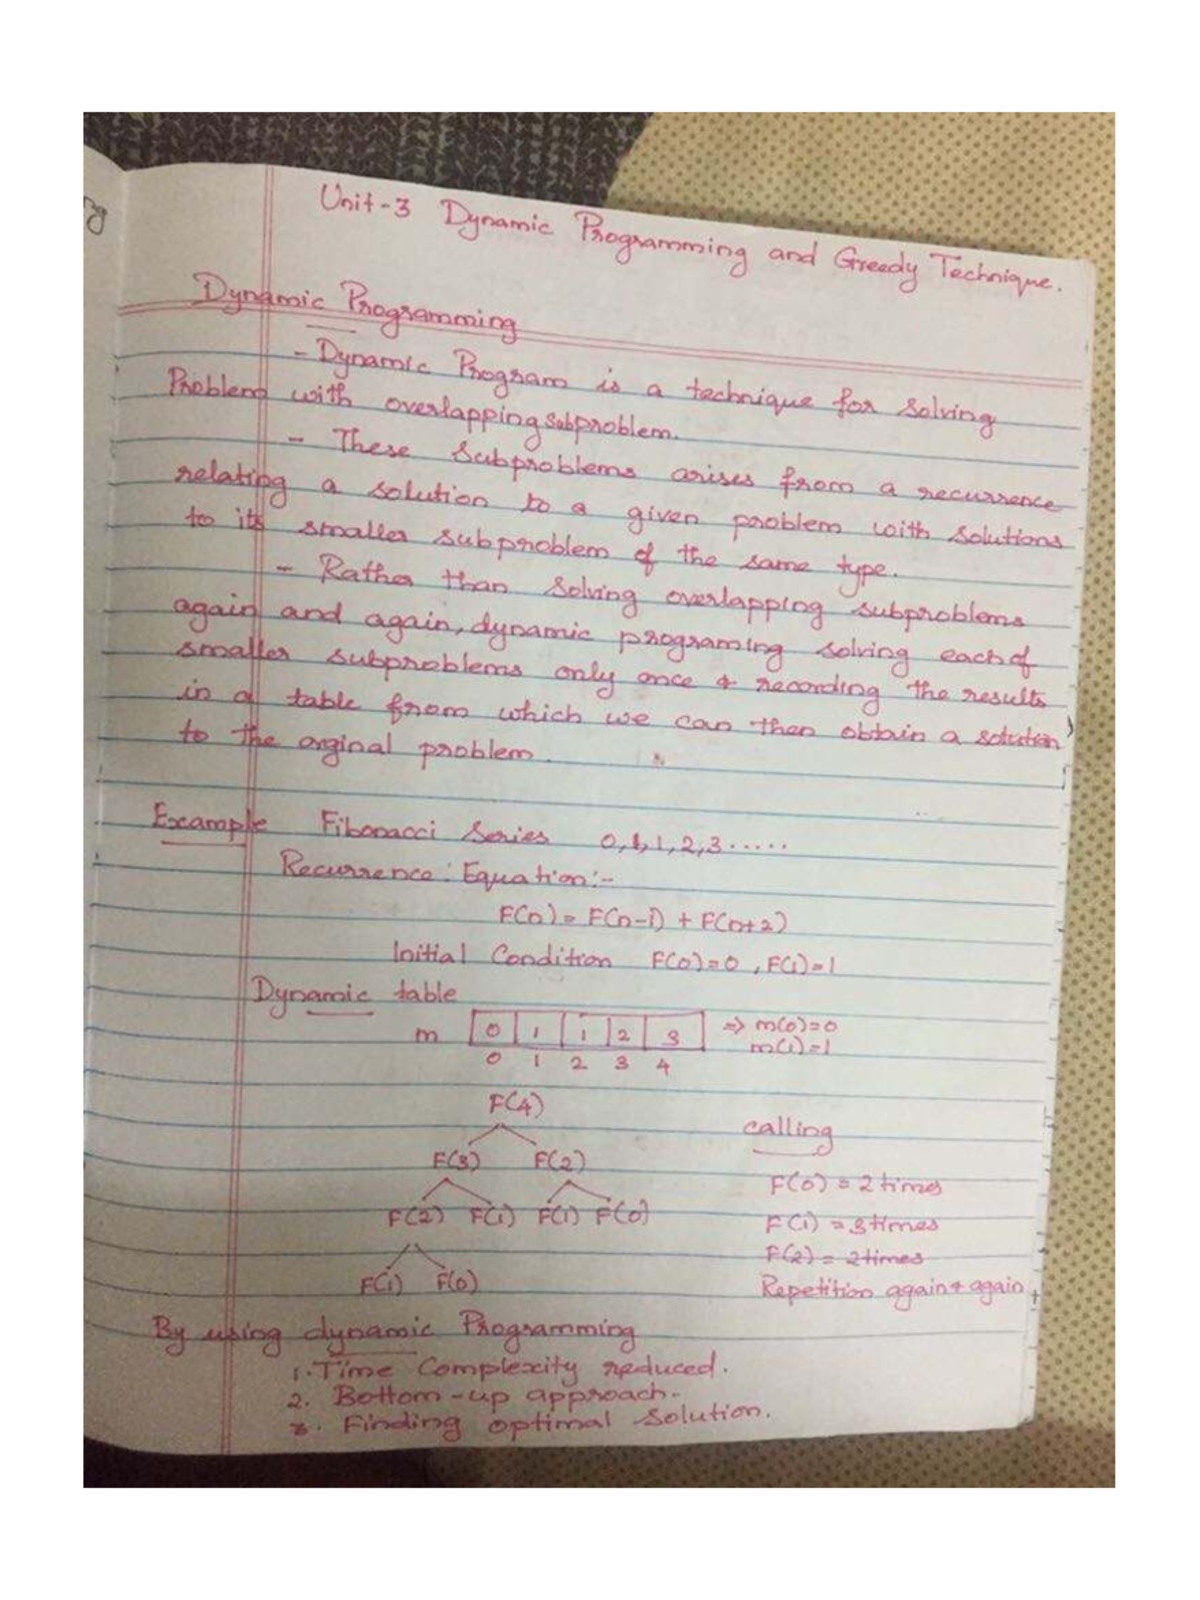 Unit-3 Dynamic Programming and Greedy Technique.
Dynamic Programming
- Dynamic Program is a technique for solving
Problem with overlapping subproblem.
- These subproblems arises from a recurrence
relating a solution to a given problem with solutions
to its smaller subproblem of the same type.
- Rather than solving overlapping subproblems
again and again, dynamic programing solving each of
smaller subproblems only once & recording the results
in a table from which we can then obtain a solution
to the orginal problem.
Example Fibonacci Series 0,1,1,2,3.....
Recurrence: Equation:-
F(n) = F(n-1) + F(n+2)
Initial Condition F(0)=0, F(1)=1
Dynamic table
m 0 1 1 2 3 => m(0)=0
m(1)=1
0 1 2 3 4
F(4)
calling
F(3) F(2)
F(0) = 2 times
F(2) F(1) F(1) F(0)
F(1) = 3 times
F(2) = 2 times
F(1) F(0)
Repetition again & again
By using dynamic Programming
1. Time Complexity reduced.
2. Bottom-up approach.
3. Finding optimal solution.